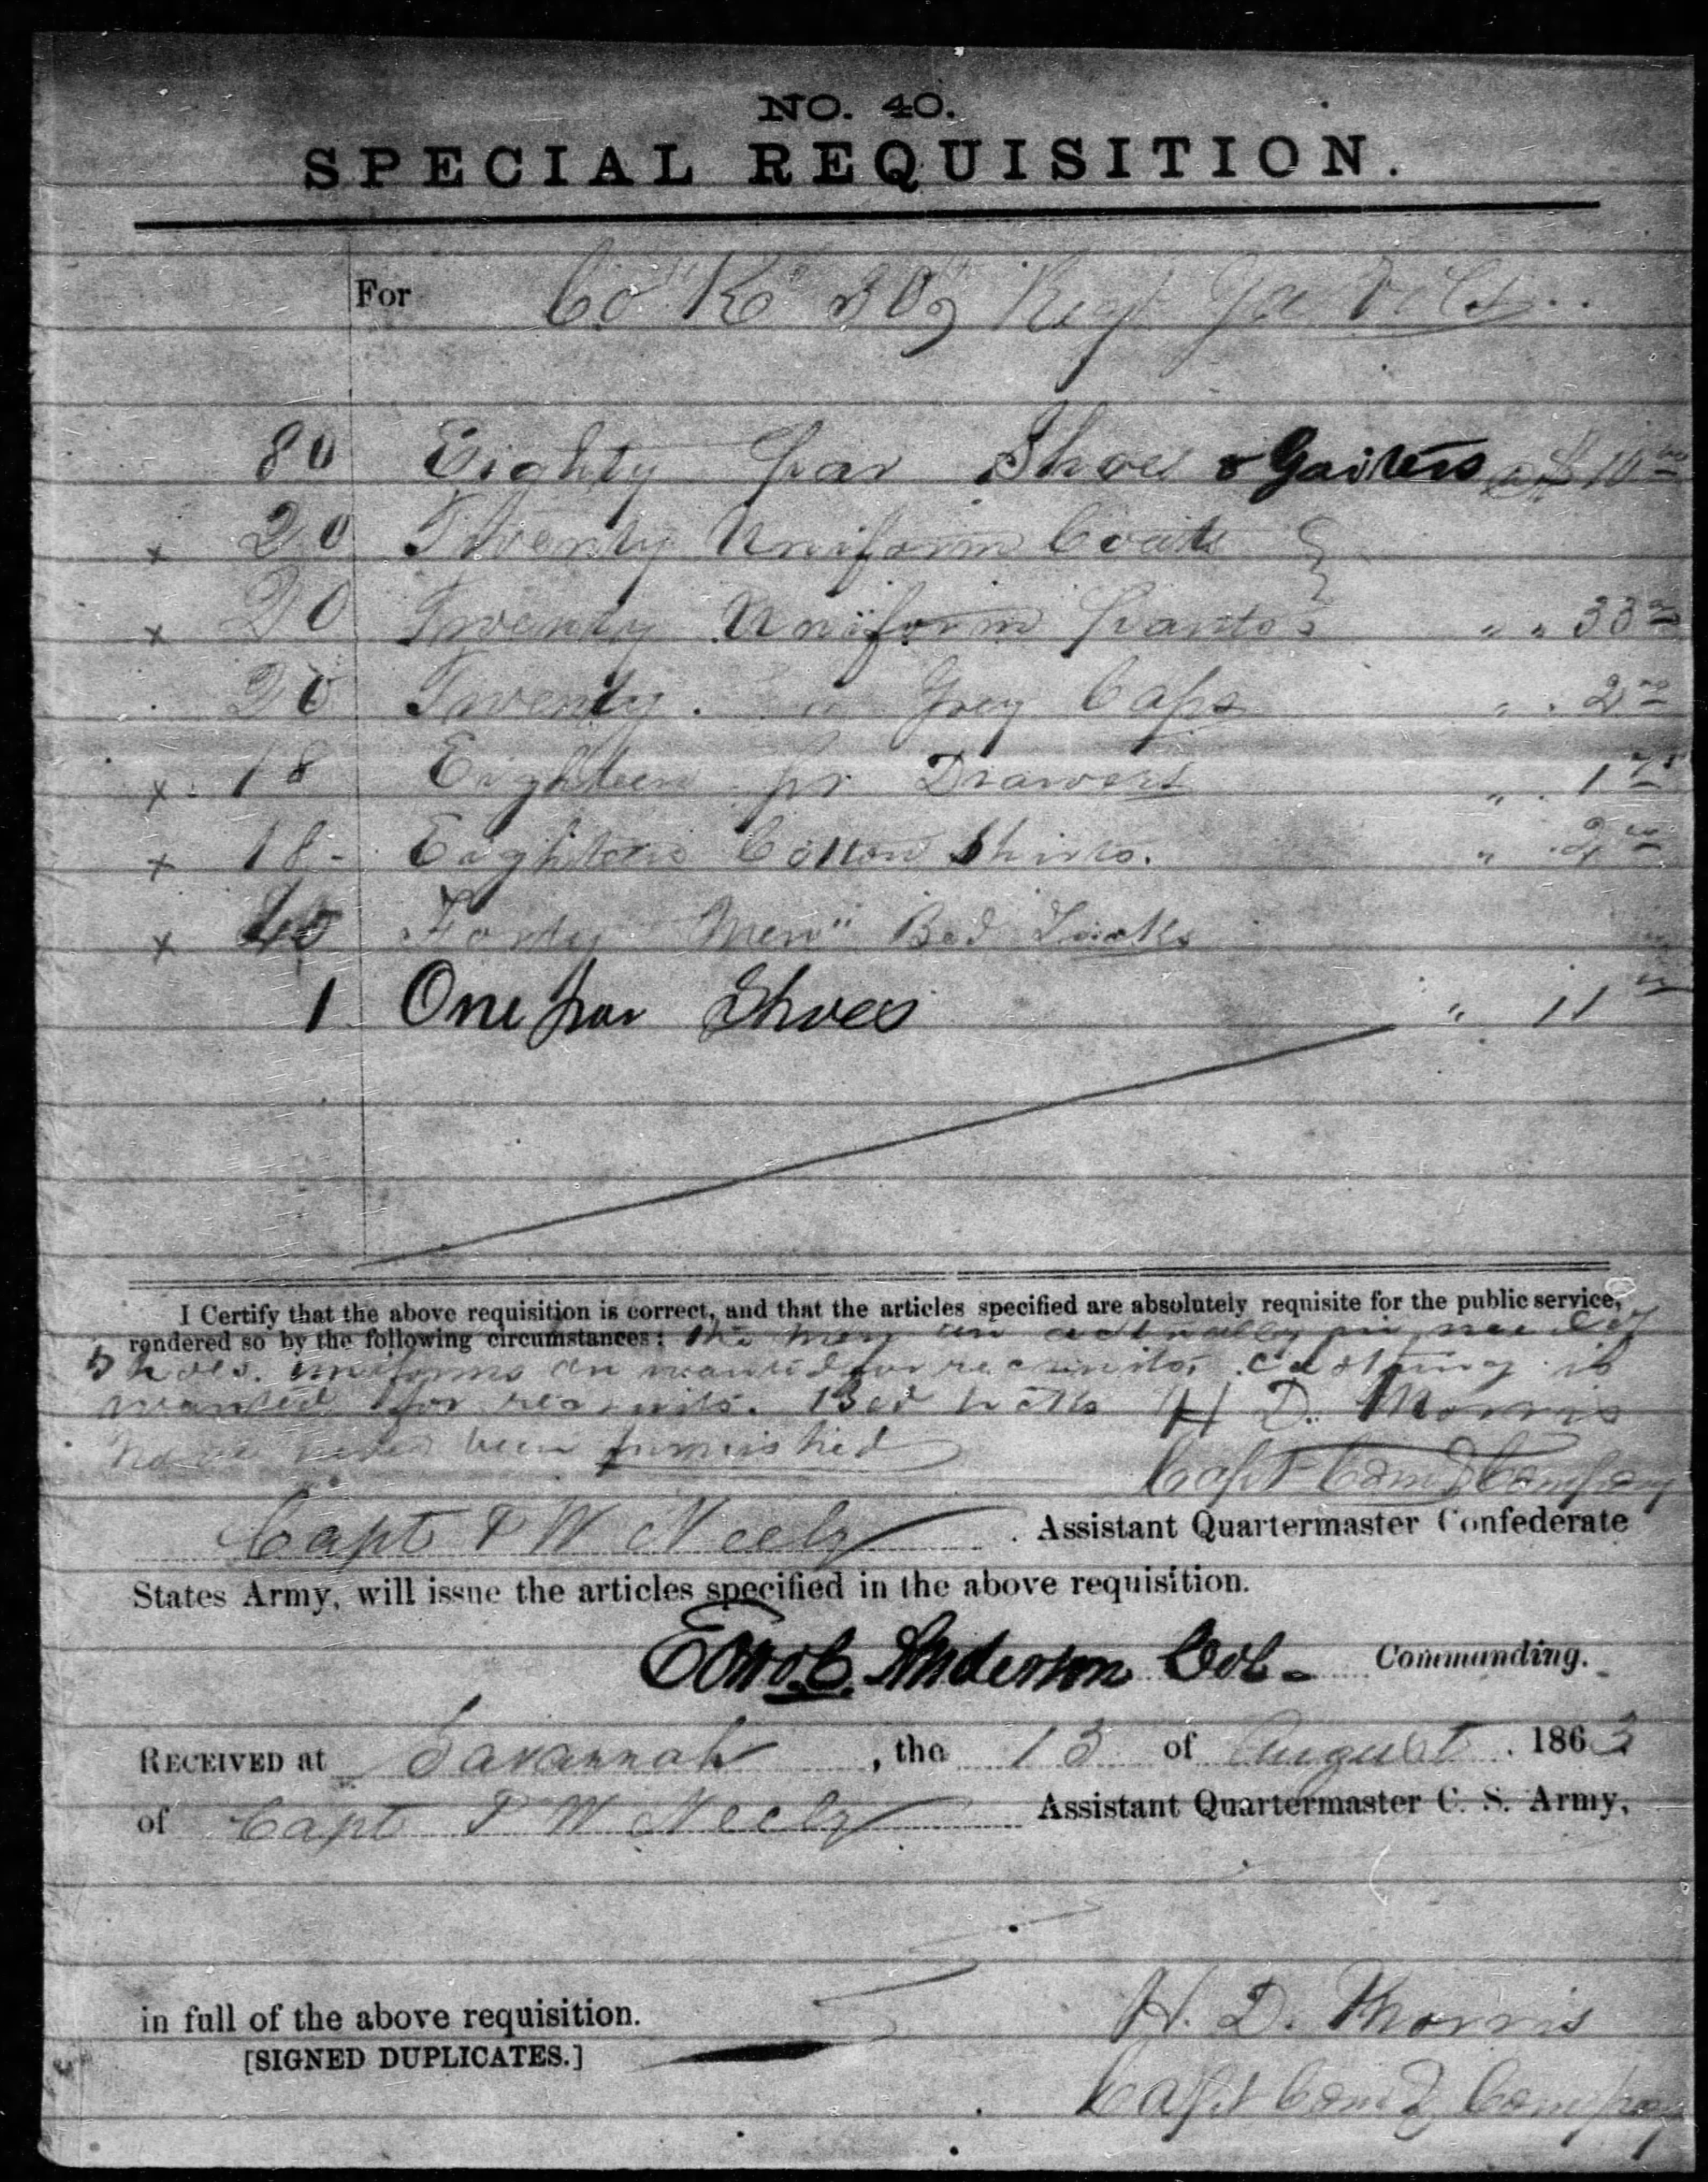 NO. 40.
SPECIAL REQUISITION.
For Co "K" 30th Regt Ga Vols
80 Eighty par Shoes & Gaiters @ $10 00
x 20 Twenty Uniform Coats }
x 20 Twenty Uniform Pants " " 33 00
20 Twenty " Grey Caps " " 2 00
x 18 Eighteen pr Drawers " " 1 75
x 18 - Eighteen Cotton Shirts. " 2 00
x 40 Forty Men" Bed Sacks
1 One par Shoes " 11 00
I Certify that the above requisition is correct, and that the articles specified are absolutely requisite for the public service,
rendered so by the following circumstances: the men are actually in need of
Shoes. uniforms are wanted for recruits. Clothing is
wanted for recruits. Bed sacks H D. Morris
have never been furnished
Capt Comd Company
Capt P W Neely Assistant Quartermaster Confederate
States Army, will issue the articles specified in the above requisition.
Edwd. C. Anderson Col- Commanding.
RECEIVED at Savannah, the 13 of August 1863
of Capt P W Neely Assistant Quartermaster C. S. Army,
in full of the above requisition.
[SIGNED DUPLICATES.]
H. D. Morris
Capt Comd Company